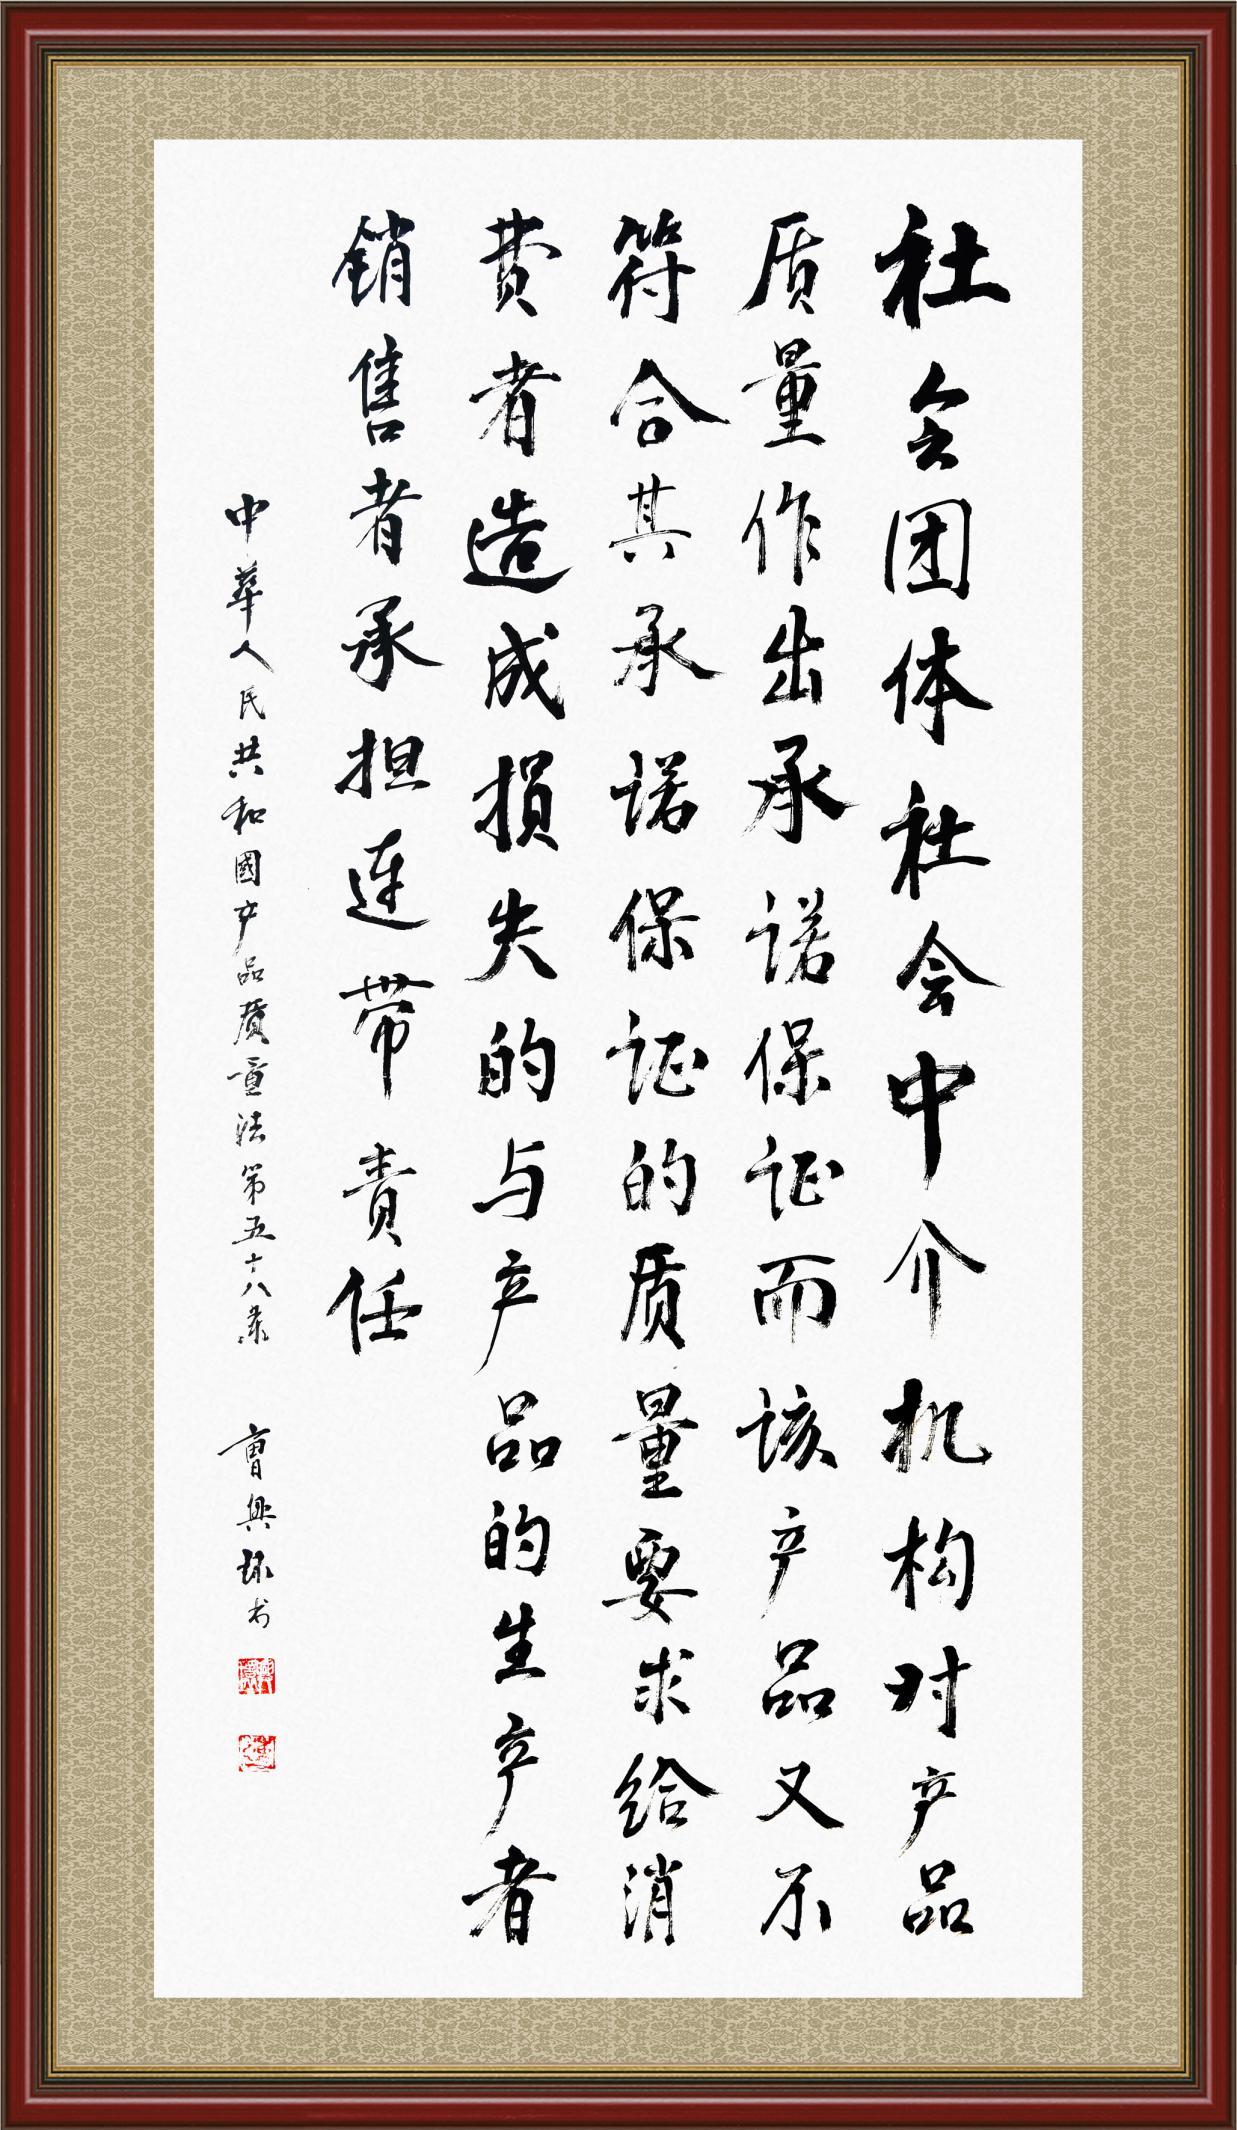 社会团体社会中介机构对产品
质量作出承诺保证而该产品又不
符合其承诺保证的质量要求给消
费者造成损失的与产品的生产者
銷售者承担连带责任
中華人民共和國产品質量法第五十八条 曹興球书